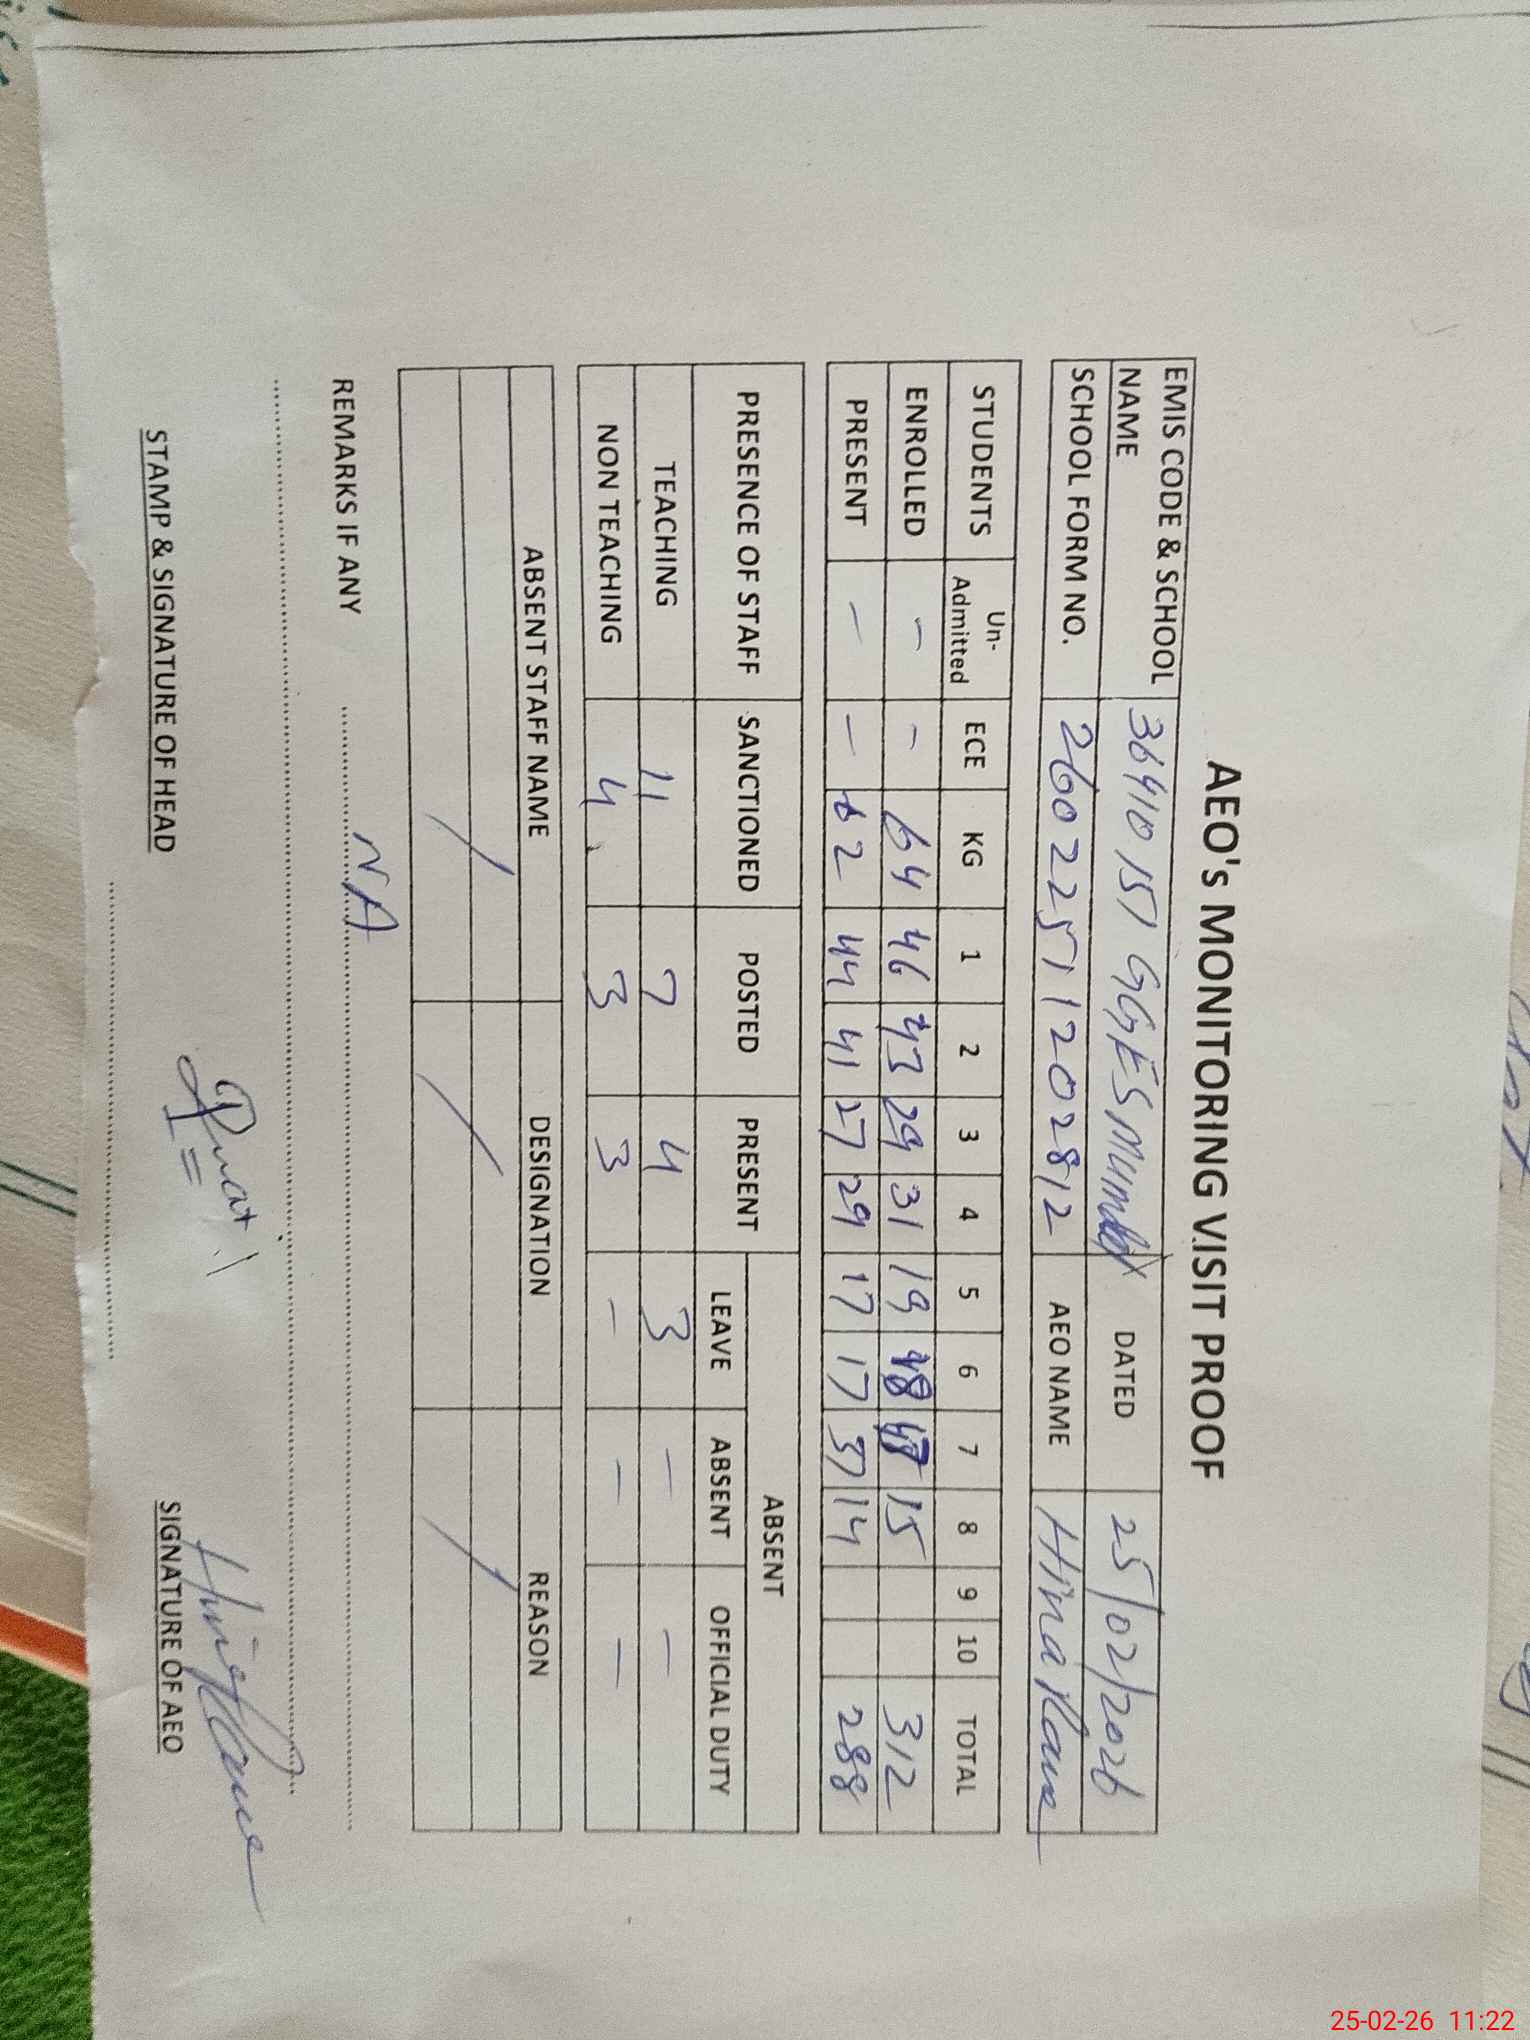 AEO's MONITORING VISIT PROOF
EMIS CODE & SCHOOL NAME 36410151 GGES DATED 25/02/2026
SCHOOL FORM NO. 260222511202812 AEO NAME Hina Rana
STUDENTS Un-Admitted ECE KG 1 2 3 4 5 6 7 8 9 10 TOTAL
ENROLLED – – 64 46 43 29 31 19 15 312
PRESENT – – 62 44 41 27 29 17 17 37 14 288
PRESENCE OF STAFF SANCTIONED POSTED PRESENT ABSENT
LEAVE ABSENT OFFICIAL DUTY
TEACHING 11 7 4 3 – –
NON TEACHING 4 3 3 – – –
ABSENT STAFF NAME DESIGNATION REASON
REMARKS IF ANY NA
STAMP & SIGNATURE OF HEAD SIGNATURE OF AEO
25-02-26 11:22